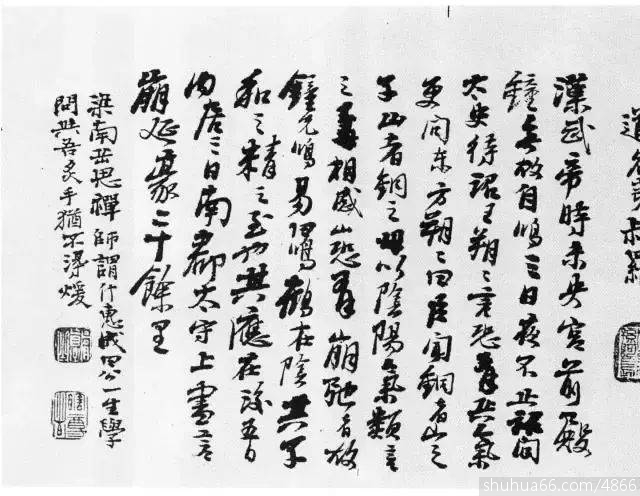 漢武帝時未央宮前殿
鐘無故自鳴三日夜不止詔問
太史待詔王朔〻言恐有兵氣
更問東方朔〻曰臣聞銅者山之
子山者銅之母以陰陽氣類言
之子母相感山恐有崩弛者故
鐘先鳴易曰鳴鶴在陰其子
和之精之至也其應在後五日
內居三日南郡太守上書言
崩延袤二十餘里
梁南岳思禪師謂什惠成曰公一生學
問與吾炙手猶不得煖
shuhua66.com/4866